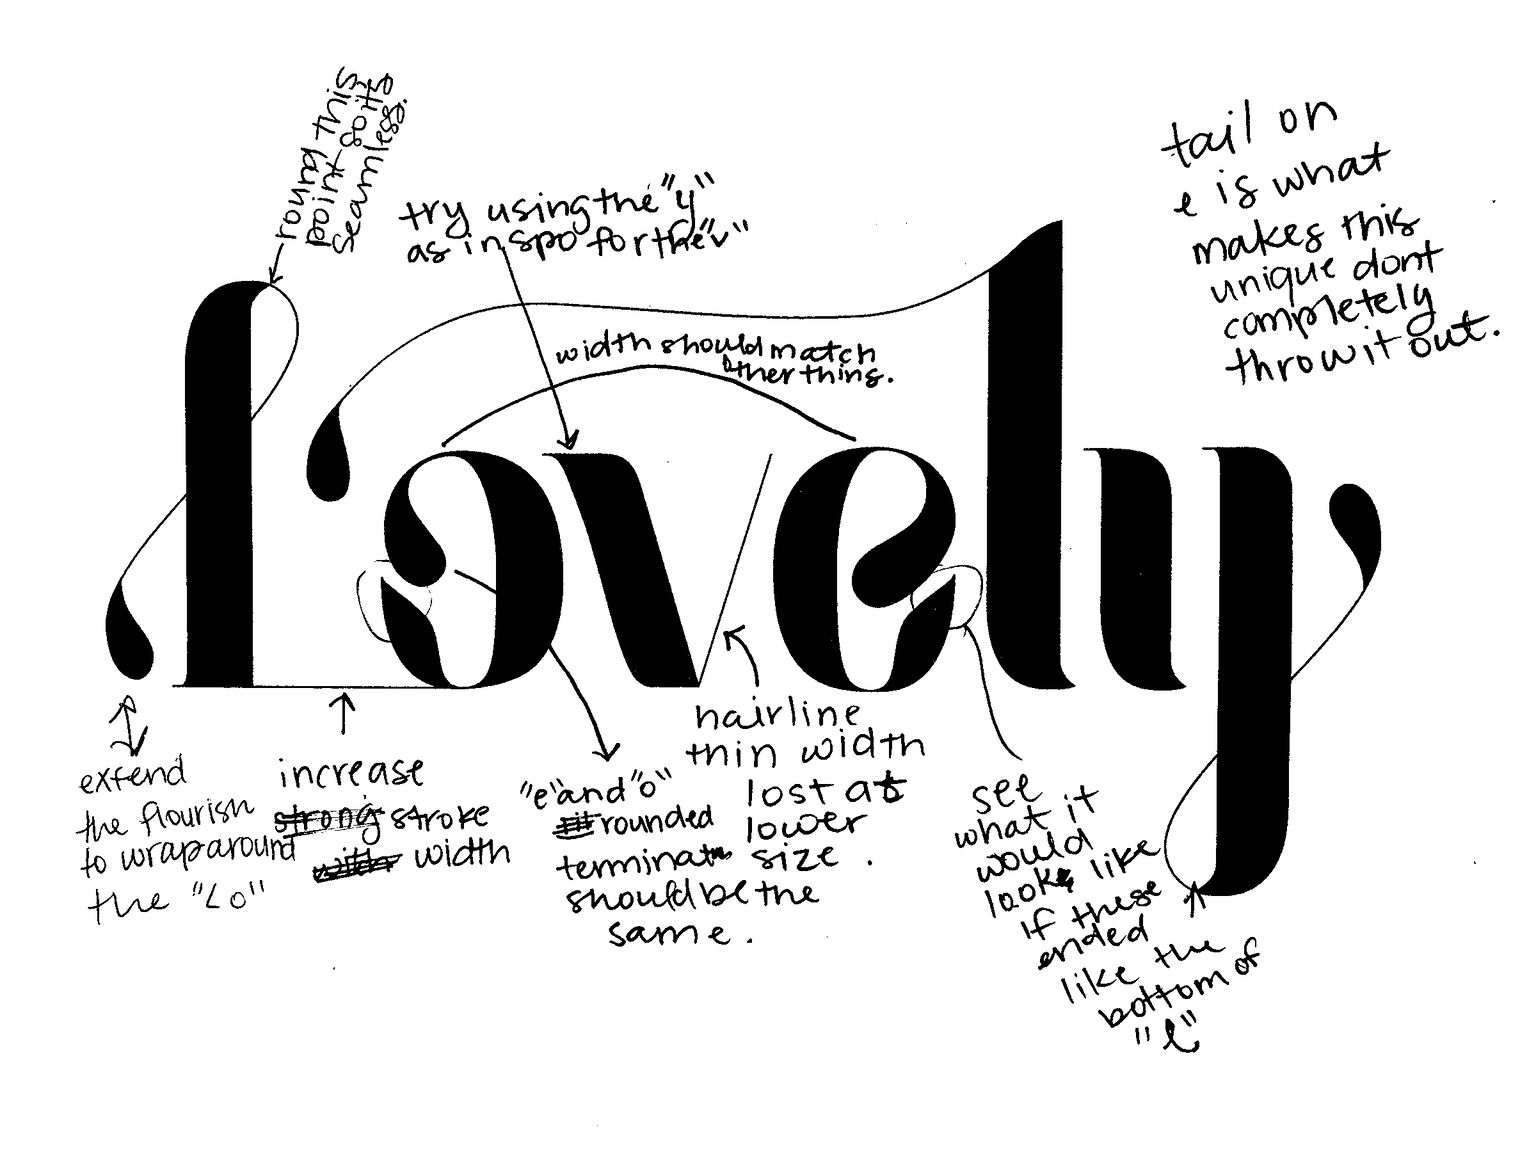 round this
point so its
seamless.
try using the "y"
as inspo for the "v"
tail on
e is what
makes this
unique dont
completely
throw it out.
width should match
other thing.
Lovely
extend
the flourish
to wrap around
the "Lo"
increase
strong stroke
width width
"e" and "o"
rounded
terminate
should be the
same.
hairline
thin width
lost at
lower
size.
see
what it
would
look like
if these
ended
like the
bottom of
"l"